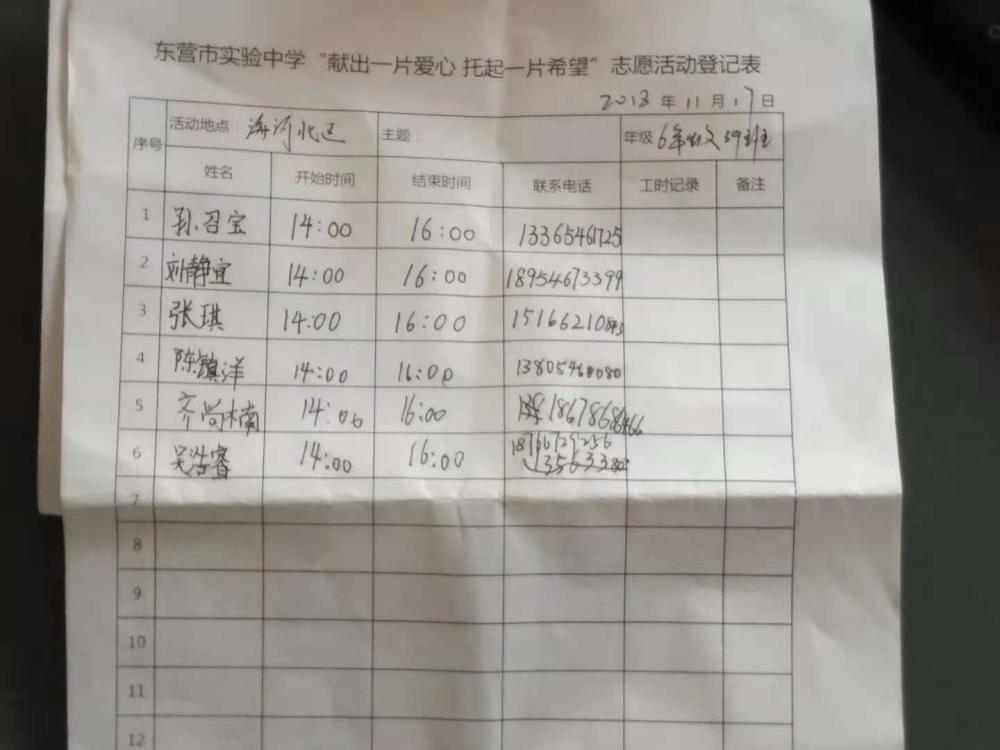 东营市实验中学“献出一片爱心 托起一片希望”志愿活动登记表
2018 年 11 月 17 日
序号 活动地点 海河北区 主题 年级 6年级 39班
姓名 开始时间 结束时间 联系电话 工时记录 备注
1 孙召宝 14:00 16:00 13365461725
2 刘静宜 14:00 16:00 18954673399
3 张琪 14:00 16:00
4 陈镇洋 14:00 16:00
5 齐尚楠 14:00 16:00
6 吴浩睿 14:00 16:00 18766729256
7
8
9
10
11
12